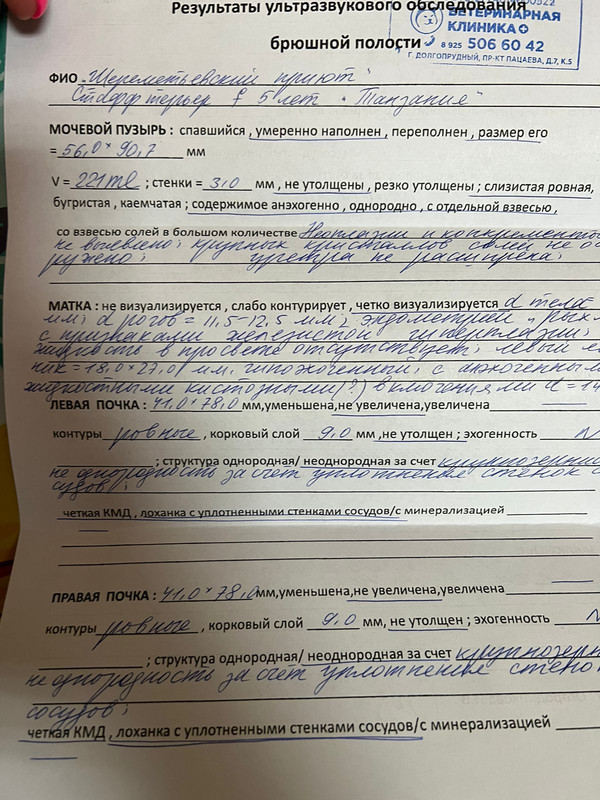 Результаты ультразвукового обследования
брюшной полости
ВЕТЕРИНАРНАЯ
КЛИНИКА
8 925 506 60 42
Г. ДОЛГОПРУДНЫЙ, ПР-КТ ПАЦАЕВА, Д.7, К.5
ФИО „Шереметьевский приют"
Стафф терьер f 5 лет „Танзания"
МОЧЕВОЙ ПУЗЫРЬ : спавшийся , умеренно наполнен , переполнен , размер его
= 56,0 × 90,7 мм
V = 221 ml ; стенки = 3,0 мм , не утолщены , резко утолщены ; слизистая ровная,
бугристая , каемчатая ; содержимое анэхогенно , однородно , с отдельной взвесью ,
со взвесью солей в большом количестве Неоплазии и конкрементов
не выявлено; крупных кристаллов солей не
уретра не расширена;
МАТКА : не визуализируется , слабо контурирует , четко визуализируется d тела
мм; d рогов = 11,5-12,5 мм; эндометрий
с признаками железистой гиперплазии;
жидкость в просвете отсутствует; левый
= 18,0 × 27,0 мм; гипоэхогенный; с анэхогенным
жидкостными кистозными (?) включениями d = 14
ЛЕВАЯ ПОЧКА : 41,0 × 78,0 мм,уменьшена,не увеличена,увеличена
контуры ровные , корковый слой 9,0 мм ,не утолщен ; эхогенность N
; структура однородная/ неоднородная за счет
неоднородность за счет уплотнения стенок
сосудов;
четкая КМД , лоханка с уплотненными стенками сосудов/с минерализацией
ПРАВАЯ ПОЧКА : 41,0 × 78,0 мм,уменьшена,не увеличена,увеличена
контуры ровные , корковый слой 9,0 мм, не утолщен ; эхогенность
; структура однородная/ неоднородная за счет
неоднородность за счет уплотнения
сосудов;
четкая КМД , лоханка с уплотненными стенками сосудов/с минерализацией